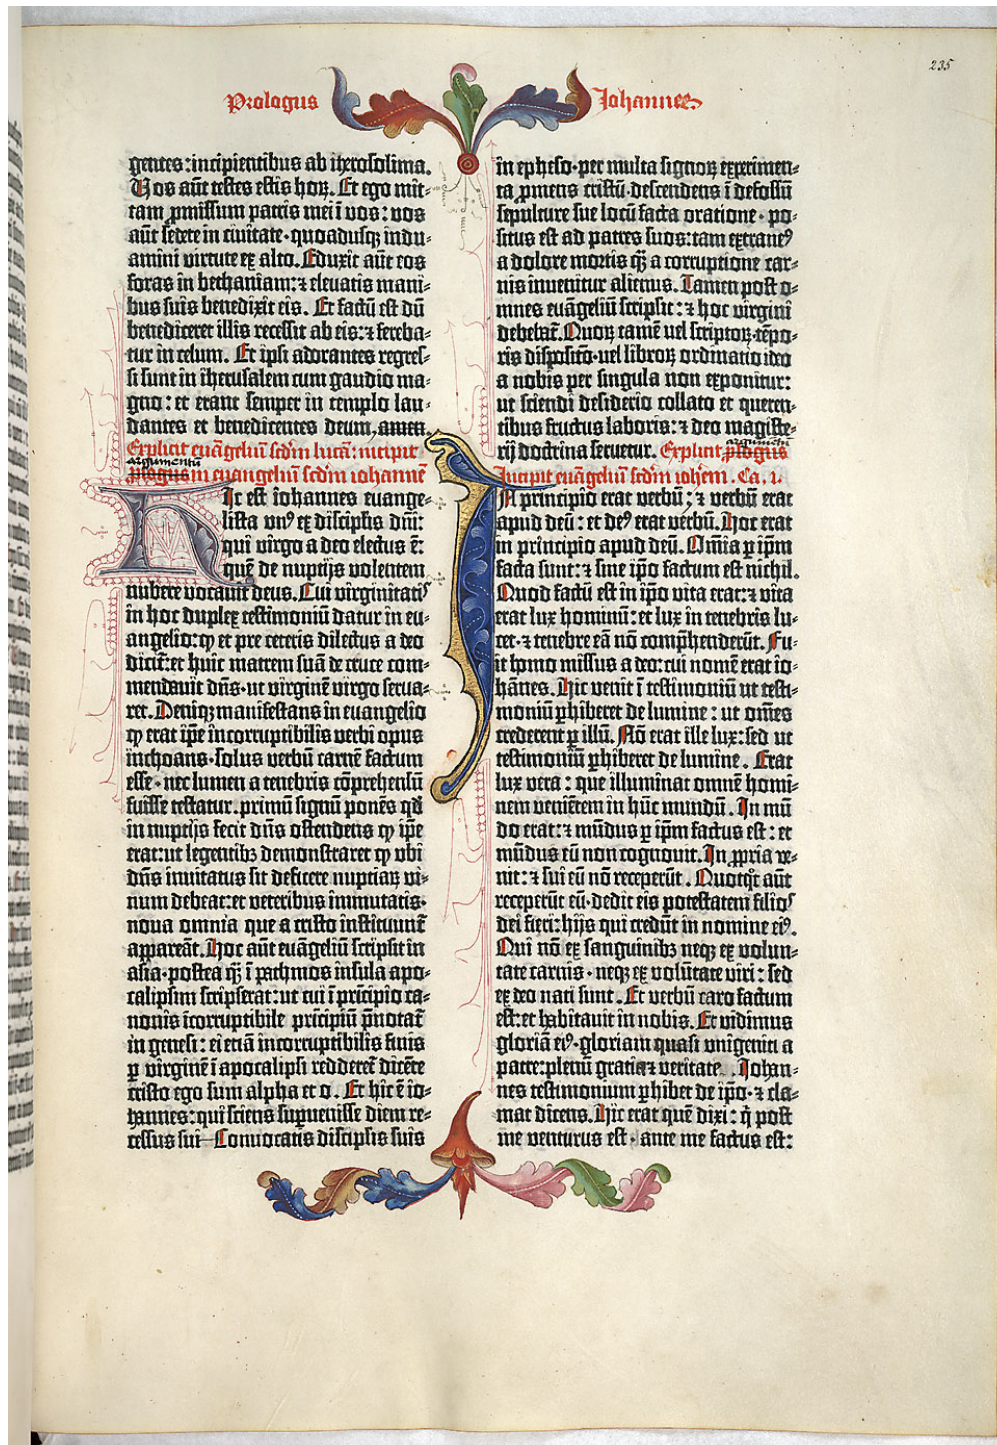 235
Prologus Iohannes
gentes: incipientibus ab iherosolima.
Vos aūt testes estis hoꝝ. Et ego mit⸗
tam ꝓmissum patris mei ī vos: vos
aūt sedete in civitate· quoadusqꝫ indu⸗
amini virtute ex alto. Eduxit aūt eos
foras in bethaniam: ⁊ elevatis mani⸗
bus suis benedixit eis. Et factū est dū
benediceret illis recessit ab eis: ⁊ fereba⸗
tur in celum. Et ipsi adorantes regres⸗
si sunt in iherusalem cum gaudio ma⸗
gno: et erant semper in templo lau⸗
dantes et benedicentes deum, amen.
Explicit euāgeliū scdm lucā: incipit
argumentū
prologus in euangeliū scdm iohannē
Hic est iohannes euange⸗
lista vnꝰ ex discipl̄is dn̄i:
qui virgo a deo electus ē:
quē de nuptijs volentem
nubere vocavit deus. Cui virginitatꝭ
in hoc duplex testimoniū datur in eu⸗
angelio: ꝙ et pre ceteris dilectus a deo
dicit̄: et huic matrem suā de cruce com⸗
mendavit dn̄s· ut virginē virgo serva⸗
ret. Deniqꝫ manifestans in euangelio
ꝙ erat ip̄e incorruptibilis verbi opus
inchoans· solus verbū carnē factum
esse· nec lumen a tenebris cōprehensū
fuisse testatur. primū signū ponēs qd̄
in nuptijs fecit dn̄s ostendens ꝙ ip̄e
erat: ut legentibꝫ demonstraret ꝙ vbi
dn̄s invitatus sit deficere nuptiaꝝ vi⸗
num debeat: et veteribus immutatis·
nova omnia que a cristo instituunt̄
appareāt. Hoc aūt euāgeliū scripsit in
asia· postea q̄ȝ ī pathmos insula apo⸗
calipsim scripserat: ut cui ī prīcipio ca⸗
nonis īcorruptibile prīcipiū p̄notat̄
in genesi: ei etiā incorruptibilis finis
ꝑ virginē ī apocalipsi redderet̄ dicēte
cristo ego sum alpha et o. Et hic ē io⸗
hannes: qui sciens sup̄uenisse diem re⸗
cessus sui Convocatis discipl̄is suis
in epheso· per multa signoꝝ experimen⸗
ta ꝓmens cristū· descendens ī defossū
sepulture sue locū facta oratione· po⸗
situs est ad patres suos: tam extraneꝰ
a dolore mortis q̄ȝ a corruptione car⸗
nis invenitur alienus. Tamen post o⸗
mnes euāgeliū scripsit: ⁊ hoc virgini
debebat̄. Quoꝝ tamē vel scriptoꝝ tēpo⸗
ris disposito· vel libroꝝ ordinatio ideo
a nobis per singula non exponitur:
ut sciendi desiderio collato et queren⸗
tibus fructus laboris: ⁊ deo magiste⸗
rij doctrina servetur. Explicit prologus
argumentū
Incipit euāgeliū scdm ioh̄em. Ca. i.
In principio erat verbū: ⁊ verbū erat
apud deū: et deꝰ erat verbū. Hoc erat
in principio apud deū. Om̄ia ꝑ ip̄m
facta sunt: ⁊ sine ip̄o factum est nichil.
Quod factū est in ip̄o vita erat: ⁊ vita
erat lux hominū: et lux in tenebris lu⸗
cet· ⁊ tenebre eā nō comp̄henderūt. Fu⸗
it homo missus a deo: cui nomē erat io⸗
hānes. Hic venit ī testimoniū ut testi⸗
moniū ꝑhiberet de lumine: ut om̄es
crederent ꝑ illū. Nō erat ille lux: sed ut
testimoniū ꝑhiberet de lumine. Erat
lux vera: que illuminat omnē homi⸗
nem veniētem in hūc mundū. In mū
do erat: ⁊ mūdus ꝑ ip̄m factus est: et
mūdus eū non cognovit. In ꝓpria ve⸗
nit: ⁊ sui eū nō receperūt. Quotq̄t aūt
receperūt eū· dedit eis potestatem filioꝭ
dei fieri: hijs qui credūt in nomine eiꝰ.
Qui nō ex sanguinibꝫ neqꝫ ex volun⸗
tate carnis· neqꝫ ex volūtate viri: sed
ex deo nati sunt. Et verbū caro factum
est: et habitavit in nobis. Et vidimus
gloriā eiꝰ· gloriam quasi vnigeniti a
patre: plenū gratia ⁊ veritate. Iohan⸗
nes testimonium ꝑhibet de ip̄o· ⁊ cla⸗
mat dicens. Hic erat quē dixi: q̇ post
me venturus est· ante me factus est: